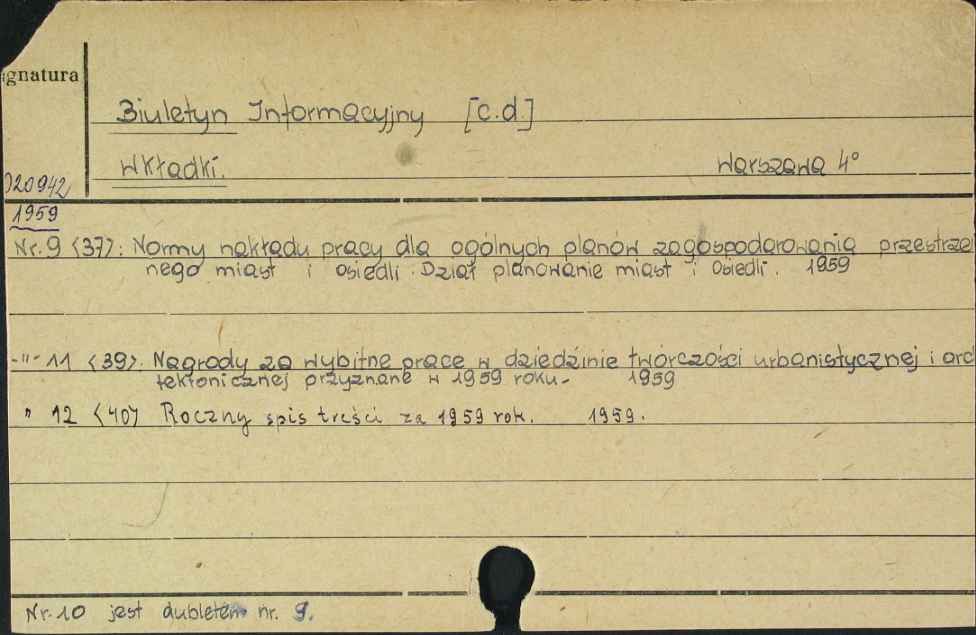 ignatura
Biuletyn Informacyjny [c.d.]
Wkładki. Warszawa 4°
020942
1959
Nr. 9 <37>: Normy nakładu pracy dla ogólnych planów zagospodarowania przestrze
nego miast i osiedli. Dział planowanie miast i osiedli. 1959
-"- 11 <39>: Nagrody za wybitne prace w dziedzinie twórczości urbanistycznej i arc
tektonicznej przyznane w 1959 roku. 1959
" 12 <40> Roczny spis treści za 1959 rok. 1959.
Nr. 10 jest dubletem nr. 9.